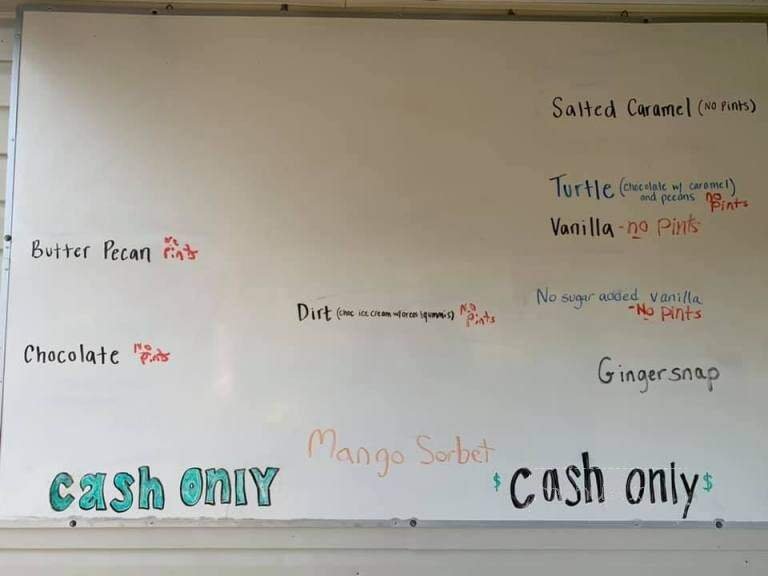 Salted Caramel (No Pints)
Turtle (chocolate w/ caramel)
and pecans no
Pints
Vanilla - no Pints
Butter Pecan no
Pints
No sugar added vanilla
- No Pints
Dirt (choc ice cream w/oreos &gummis) No
Pints
Chocolate No
Pints
Gingersnap
Mango Sorbet
cash only
$ cash only $